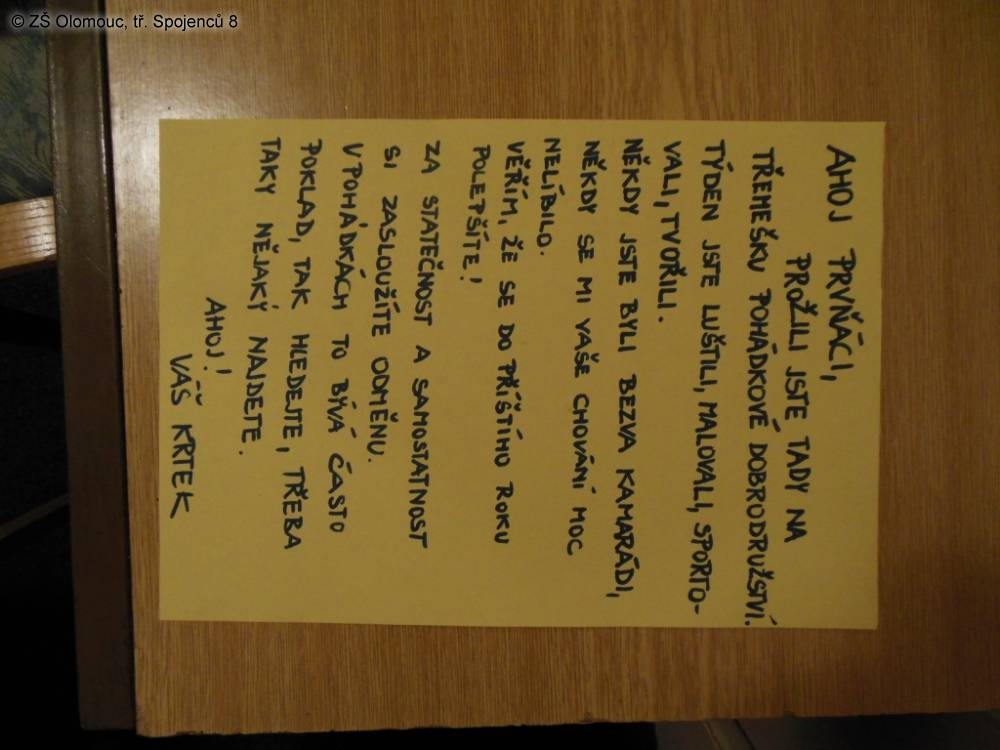 © ZŠ Olomouc, tř. Spojenců 8
AHOJ PRVŇÁCI,
PROŽILI JSTE TADY NA
TŘEMEŠKU POHÁDKOVÉ DOBRODRUŽSTVÍ.
TÝDEN JSTE LUŠTILI, MALOVALI, SPORTO-
VALI, TVOŘILI.
NĚKDY JSTE BYLI BEZVA KAMARÁDI,
NĚKDY SE MI VAŠE CHOVÁNÍ MOC
NELÍBILO.
VĚŘÍM, ŽE SE DO PŘÍŠTÍHO ROKU
POLEPŠÍTE!
ZA STATEČNOST A SAMOSTATNOST
SI ZASLOUŽÍTE ODMĚNU.
V POHÁDKÁCH TO BÝVÁ ČASTO
POKLAD, TAK HLEDEJTE, TŘEBA
TAKY NĚJAKÝ NAJDETE.
AHOJ!
VÁŠ KRTEK